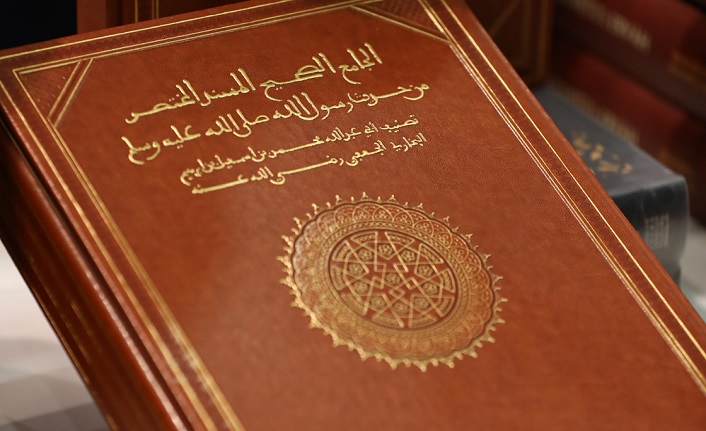 الجامع الصحيح المسند المختصر
من حديث رسول الله صلى الله عليه وسلم
تصنيف أبي عبد الله محمد بن إسماعيل بن إبرهيم
البخاري الجعفي رضي الله عنه